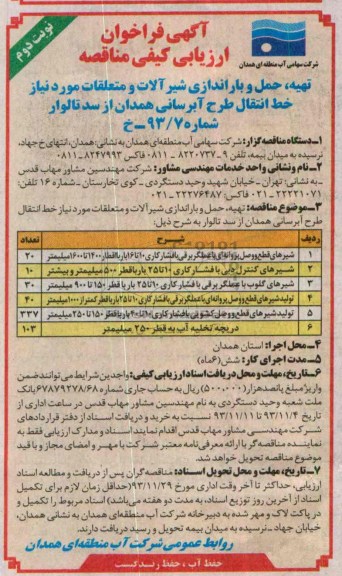 نوبت دوم
آگهی فراخوان
ارزیابی کیفی مناقصه
شرکت سهامی آب منطقه‌ای همدان
تهیه، حمل و باراندازی شیرآلات و متعلقات مورد نیاز
خط انتقال طرح آبرسانی همدان از سد تالوار
شماره ۹۳/۷-خ
۱-دستگاه مناقصه‌گزار: شرکت سهامی آب منطقه‌ای همدان به نشانی: همدان، انتهای خ جهاد،
نرسیده به میدان بیمه، تلفن ۹-۸۲۲۰۷۳۷-۰۸۱۱ فاکس ۸۲۴۷۹۹۳-۰۸۱۱
۲-نام و نشانی واحد خدمات مهندسی مشاور: شرکت مهندسین مشاور مهاب قدس
-به نشانی: تهران - خیابان شهید وحید دستگردی - کوی تخارستان - شماره ۱۶ تلفن:
۲۲۲۲۱۰۷۱-۰۲۱ فاکس: ۲۲۲۷۶۴۸۷-۰۲۱
۳-موضوع مناقصه: تهیه، حمل و باراندازی شیرآلات و متعلقات مورد نیاز خط انتقال
طرح آبرسانی همدان از سد تالوار به شرح ذیل:
ردیف شرح تعداد
۱ شیرهای قطع و وصل پروانه‌ای با عملگر برقی با فشار کاری ۱۰ تا ۱۶ بار با اقطار ۱۴۰۰ تا ۱۶۰۰ میلیمتر ۲۰
۲ شیرهای کنترل دبی با فشار کاری ۱۰ تا ۲۵ بار با قطر ۵۰۰ میلیمتر و بیشتر ۱۰
۳ شیرهای گلوب با عملگر برقی با فشار کاری ۱۰ تا ۲۵ بار با قطر ۱۵۰ تا ۹۰۰ میلیمتر ۳۰
۴ تولید شیرهای قطع و وصل پروانه‌ای با عملگر برقی با فشار کاری ۱۰ تا ۲۵ بار با قطر کمتر از ۱۰۰۰ میلیمتر ۴۰
۵ تولید شیرهای قطع و وصل کشویی با فشار کاری ۱۰ تا ۴۰ بار با قطر ۱۵۰ تا ۲۵۰ میلیمتر ۳۳۷
۶ دریچه تخلیه آب به قطر ۲۵۰ میلیمتر ۱۰۳
۴-محل اجرا: استان همدان
۵-مدت اجرای کار: شش (۶ ماه)
۶-تاریخ، مهلت و محل دریافت اسناد ارزیابی کیفی: واجدین شرایط می‌توانند ضمن
واریز مبلغ پانصد هزار (۵۰۰۰۰۰) ریال به حساب جاری شماره ۶۷۸۷۹۲۷۸/۶۸ بانک
ملت شعبه وحید دستگردی به نام مهندسین مشاور مهاب قدس در ساعات اداری از
تاریخ ۹۳/۱۱/۴ تا ۹۳/۱۱/۱۱ نسبت به خرید و دریافت اسناد از دفتر قراردادهای
شرکت مهندسی مشاور مهاب قدس اقدام نمایند. اسناد و مدارک ارزیابی فقط به
نماینده مناقصه‌گر با ارائه معرفی‌نامه معتبر شرکت با مهر و امضای مجاز و با قید
موضوع مناقصه تحویل خواهد شد.
۷-تاریخ، مهلت و محل تحویل اسناد: مناقصه‌گران پس از دریافت و مطالعه اسناد
ارزیابی، حداکثر تا آخر وقت اداری مورخ ۹۳/۱۱/۲۹ (حداقل زمان لازم برای تکمیل
اسناد از آخرین روز توزیع اسناد، به مدت دو هفته می‌باشد) اسناد مربوط را تکمیل و
در پاکت لاک و مهر شده به دبیرخانه شرکت آب منطقه‌ای همدان به نشانی همدان،
خیابان جهاد - نرسیده به میدان بیمه تحویل و رسید دریافت دارند.
روابط عمومی شرکت آب منطقه‌ای همدان
حفظ آب، حفظ زندگیست